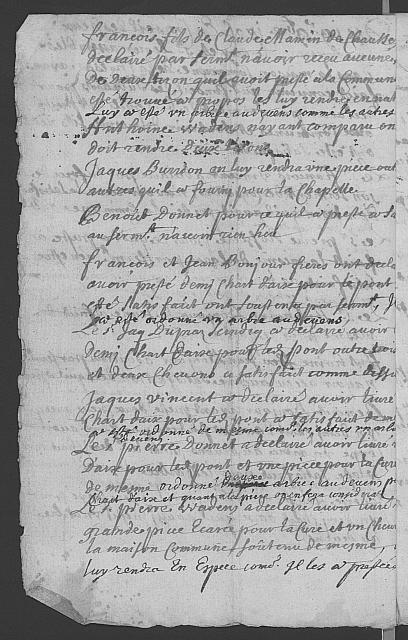 francois fils de Claude Mamin de Chaulle
declairé par serm.t n'avoir receu aucune
De deux tison quil avoit presté a la Commun
esté trouvé a propos les luy rendre en nat
Luy a esté un arbre au devens comme les autres
Anthoine Wadens ayant comparu on
doit rendre deux tisons
Jaques Burdon on luy rendra une piece ou
autres quil a fourny pour la Chapelle
Benoist Donnet pour ce quil a presté a
au serm.t navoir rien heu
francois et Jean Bonjour freres ont decla
avoir presté demj Chart daire pour le pont
esté satisfait ont par serm.t
a esté ordonné un arbre au devens
Le s.r Jay a declairé avoir
demj Chart daire pour led. pont outre
et deux Chevons a satisfait comme dessu
Jaques vincent a declairé avoir livré
Chart dair pour led. pont a satisfait de
esté ordonné de mesme comme les autres un arbre
devens
Le s.r pierre Donnet a declairé avoir livré
Daire pour led. pont et une piece pour la Cure
de mesme ordonné deux arbres au devens
Chart daire et quant a la piece on en fera
Le s.r pierre Wadens a declairé avoir livré
grande piece Ecarée pour la Cure et un Chev
la maison Commune soutenu de mesme,
luy rendra En Espece com.e Il les a presté